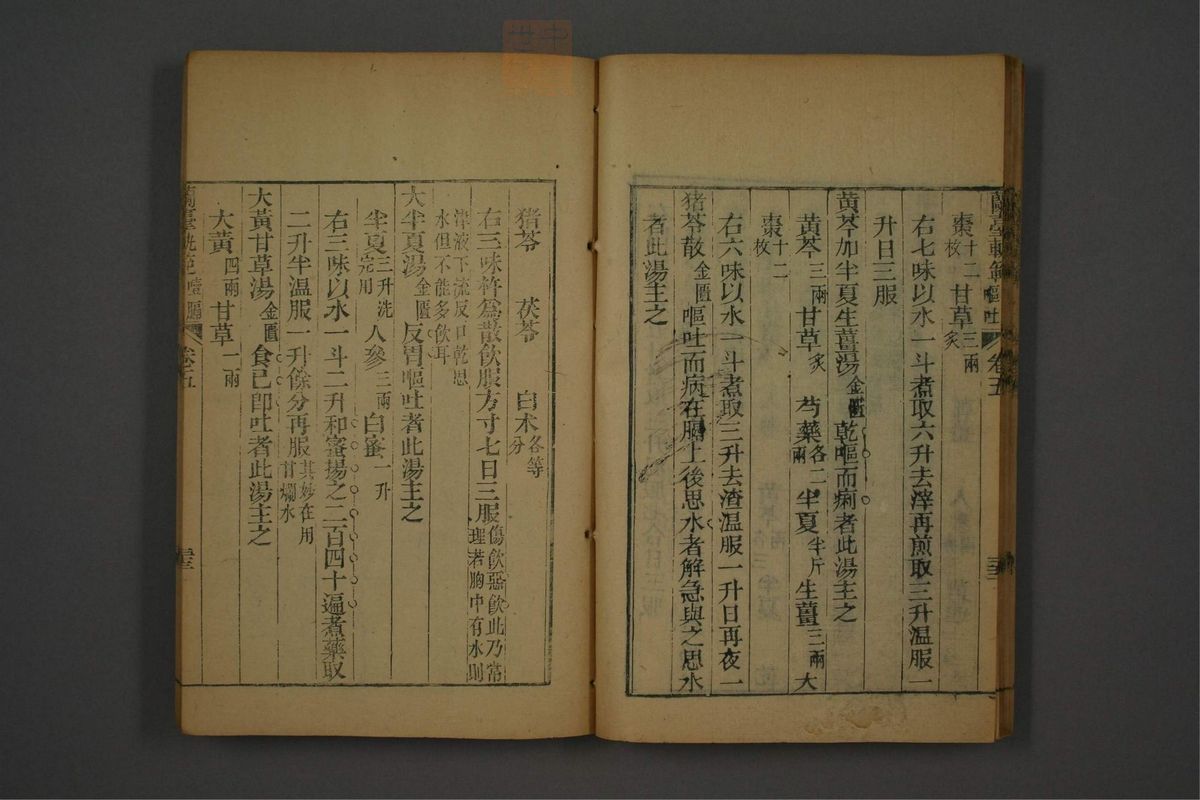 蘭臺軌範 嘔吐 卷五 三三
棗十二枚 甘草三兩炙
右七味以水一斗煮取六升去滓再煎取三升温服一
升日三服
黄芩加半夏生薑湯金匱乾嘔而痢者此湯主之
黄芩三兩 甘草炙 芍藥各二兩 半夏半斤 生薑三兩 大
棗十二枚
右六味以水一斗煮取三升去渣温服一升日再夜一
猪苓散金匱嘔吐而病在膈上後思水者解急與之思水
者此湯主之
猪苓 茯苓 白术各等分
右三味杵為散飲服方寸七日三服傷飲惡飲此乃常理若胸中有水則
津液下流反口乾思水但不能多飲耳
大半夏湯金匱反胃嘔吐者此湯主之
半夏三升洗完用 人參三兩 白蜜一升
右三味以水一斗二升和蜜揚之二百四十遍煮藥取
二升半温服一升餘分再服其妙在用甘爛水
大黃甘草湯金匱食已即吐者此湯主之
大黃四兩 甘草一兩
蘭臺軌範 噎膈 卷五